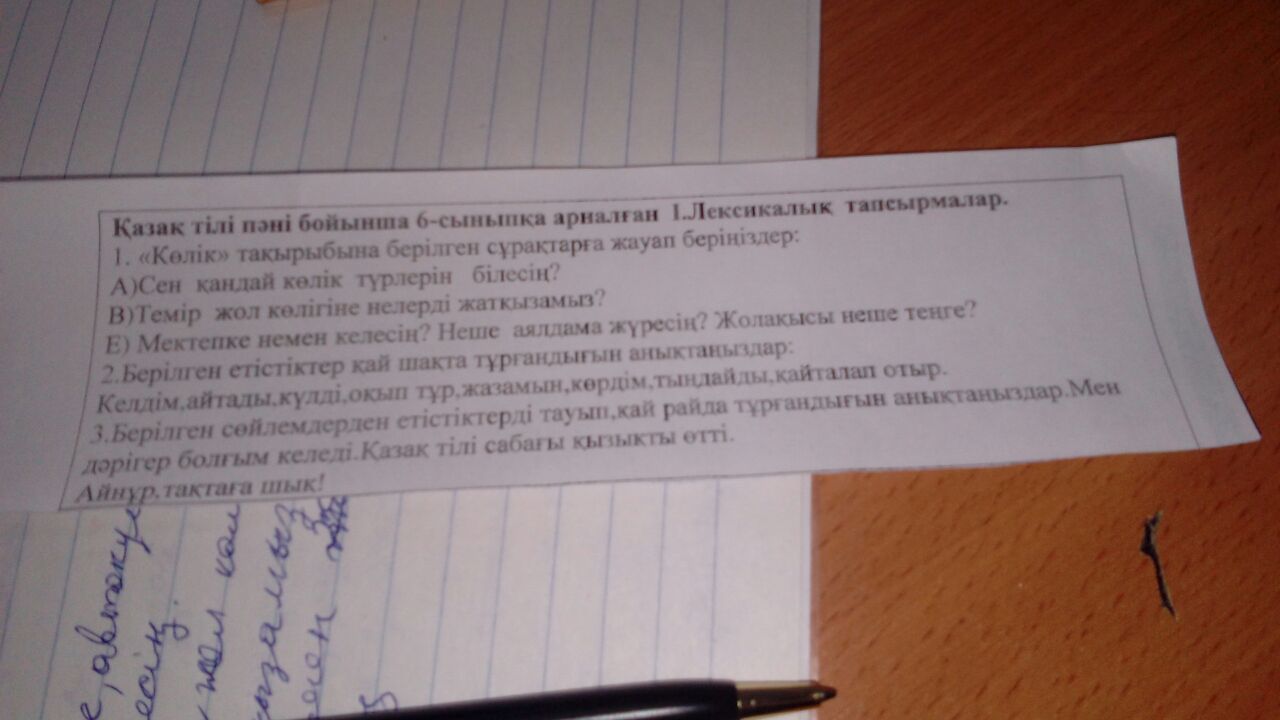 Қазақ тілі пәні бойынша 6-сыныпқа арналған I.Лексикалық тапсырмалар.
1. «Көлік» тақырыбына берілген сұрақтарға жауап беріңіздер:
А)Сен қандай көлік түрлерін білесің?
В)Темір жол көлігіне нелерді жатқызамыз?
Е) Мектепке немен келесің? Неше аялдама жүресің? Жолақысы неше теңге?
2.Берілген етістіктер қай шақта тұрғандығын анықтаңыздар:
Келдім,айтады,күлді,оқып тұр,жазамын,көрдім,тыңдайды,қайталап отыр.
3.Берілген сөйлемдерден етістіктерді тауып,қай райда тұрғандығын анықтаңыздар.Мен
дәрігер болғым келеді.Қазақ тілі сабағы қызықты өтті.
Айнұр,тақтаға шық!